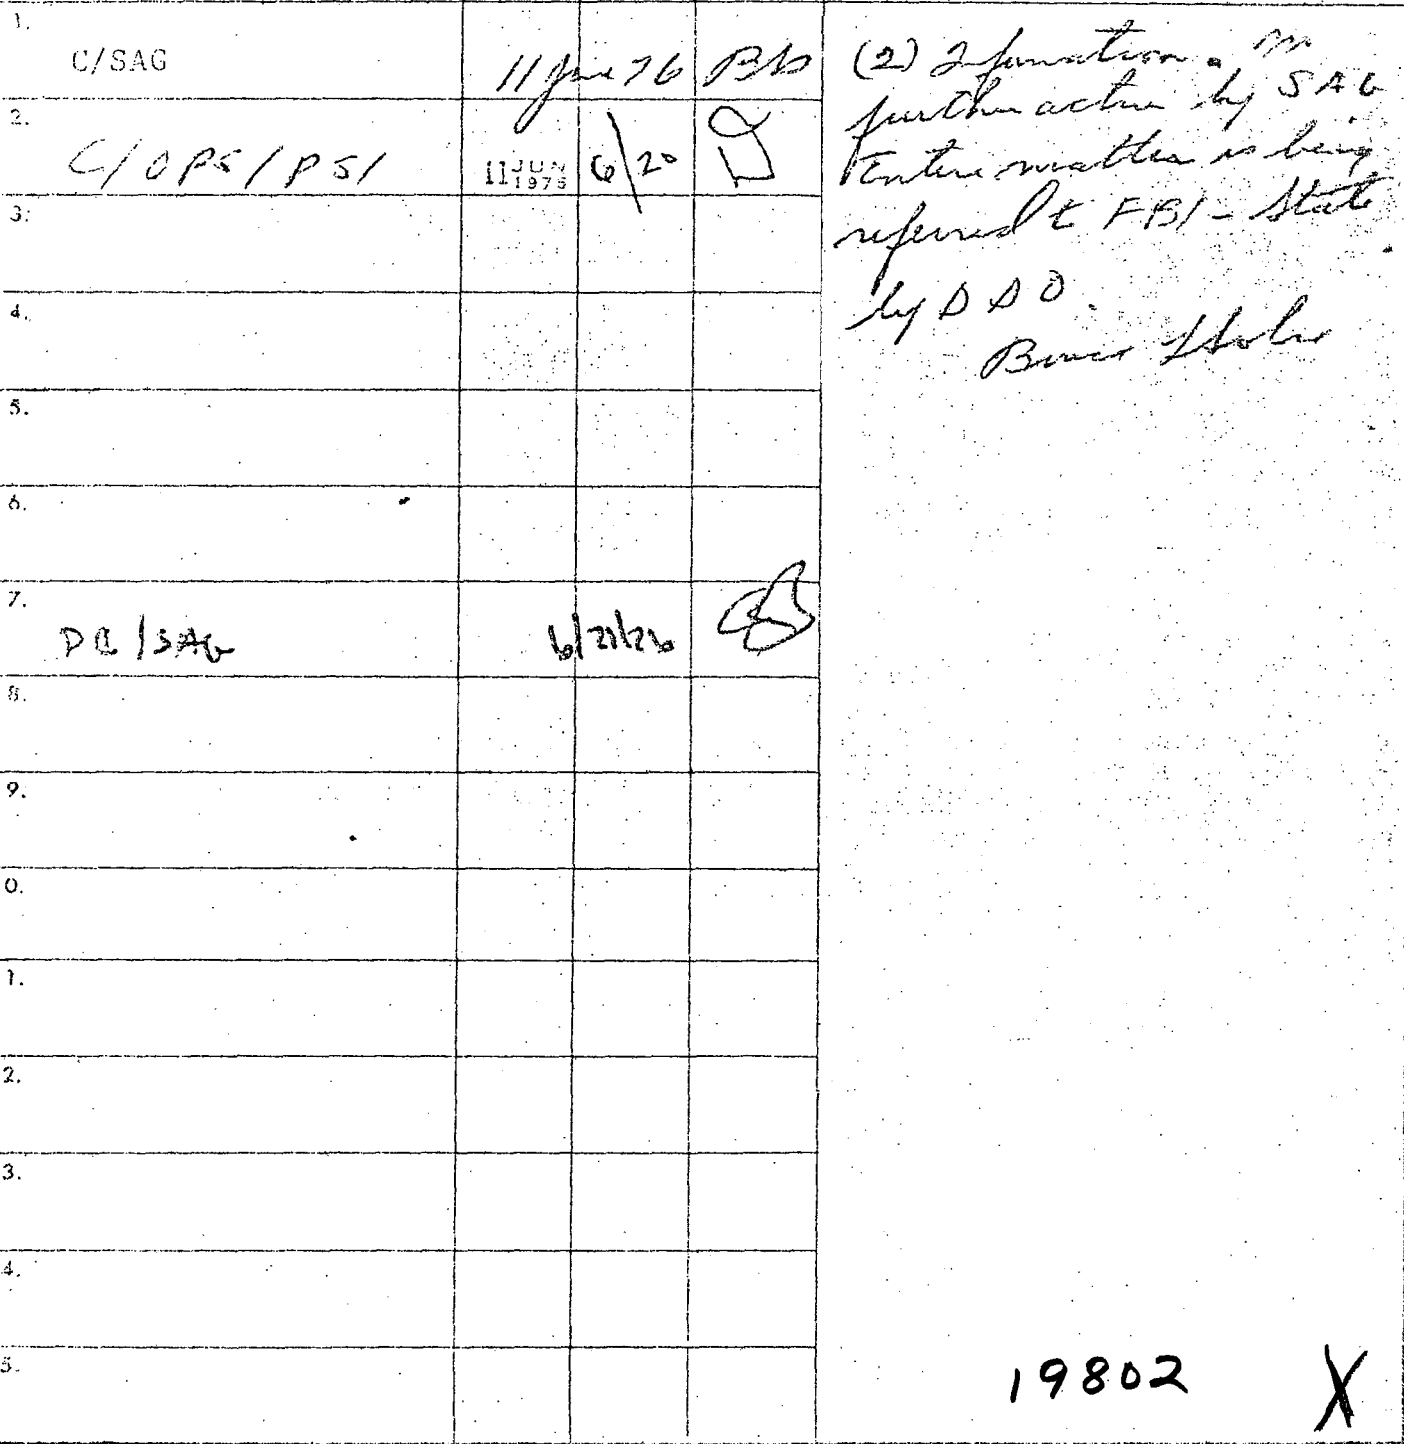 1.
C/SAG 11 June 76
2.
C/OPS/PSI 11 JUN 1976 6/20
3.
4.
5.
6.
7.
DC/SAG 6/21/76
8.
9.
0.
1.
2.
3.
4.
5.
(2) Information. No
further action by SAG
Entire matter is being
referred to FBI - State
by DDO.
19802 X